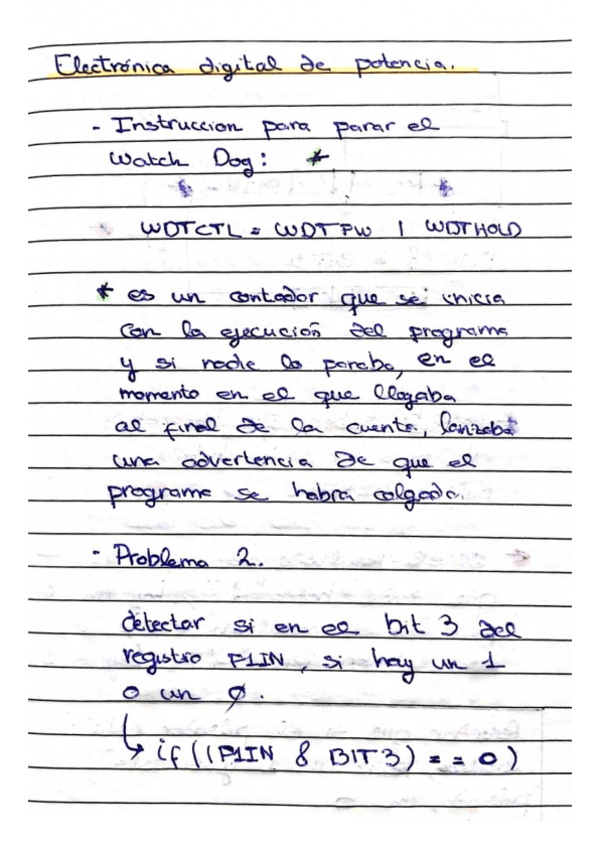 Electrónica digital de potencia.
- Instruccion para parar el
Watch Dog: *
WDTCTL = WDTPW | WDTHOLD
* es un contador que se inicia
con la ejecución del programa
y si nade lo paraba, en el
momento en el que llegaba
al final de la cuenta, lanzaba
una advertencia de que el
programa se habra colgado.
- Problema 2.
detectar si en el bit 3 del
registro P1IN, si hay un 1
o un 0.
↳ if ((P1IN & BIT3) == 0)